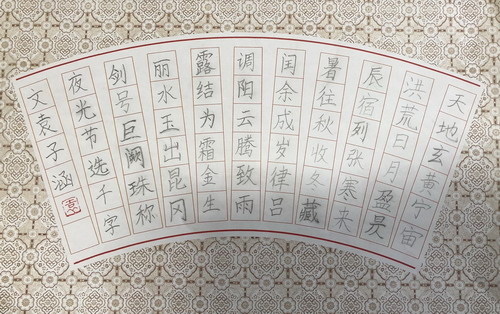 天地玄黄宇宙
洪荒日月盈昃
辰宿列张寒来
暑往秋收冬藏
闰余成岁律吕
调阳云腾致雨
露结为霜金生
丽水玉出昆冈
剑号巨阙珠称
夜光节选千字
文袁子涵